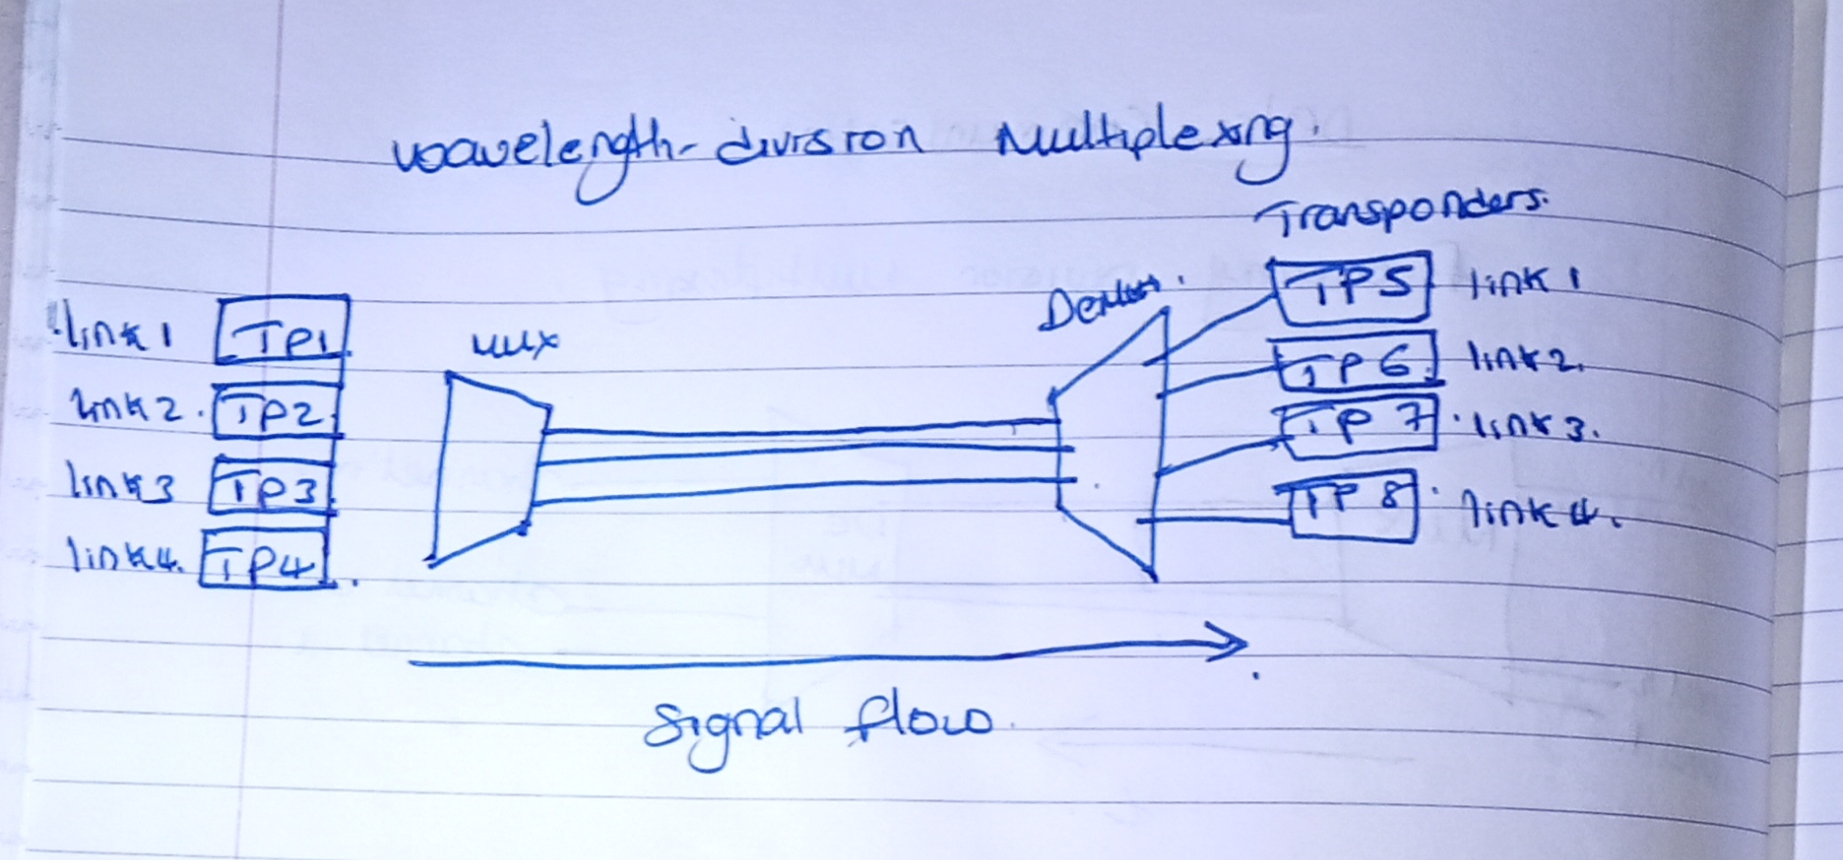 wavelength-division Multiplexing.
Transponders.
link 1 TP1
link 2. TP2
link 3 TP3
link 4. TP4
Mux
Demux.
TP5 link 1
TP6 link 2.
TP7 link 3.
TP8 link 4.
Signal flow.